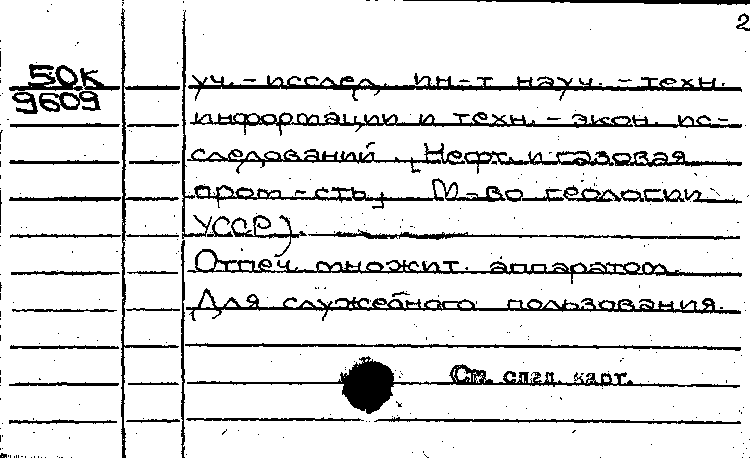 2
50К
9609
уч.-исслед. ин-т науч.-техн.
информации и техн.-экон. ис-
следований. [Нефт. и газовая
пром-сть] М-во геологии
УССР).
Отпеч. множит. аппаратом.
Для служебного пользования.
См. след. карт.